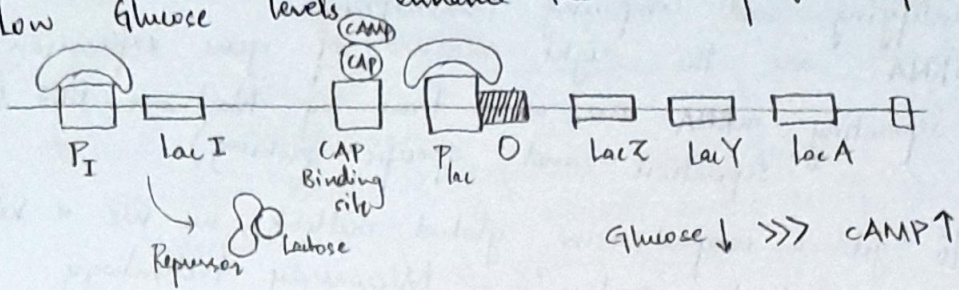 Low Glucose levels enhance
CAMP
CAP
P_I Lac I CAP Binding site P_lac O LacZ LacY LacA
Repressor
Lactose
Glucose ↓ >>> cAMP ↑